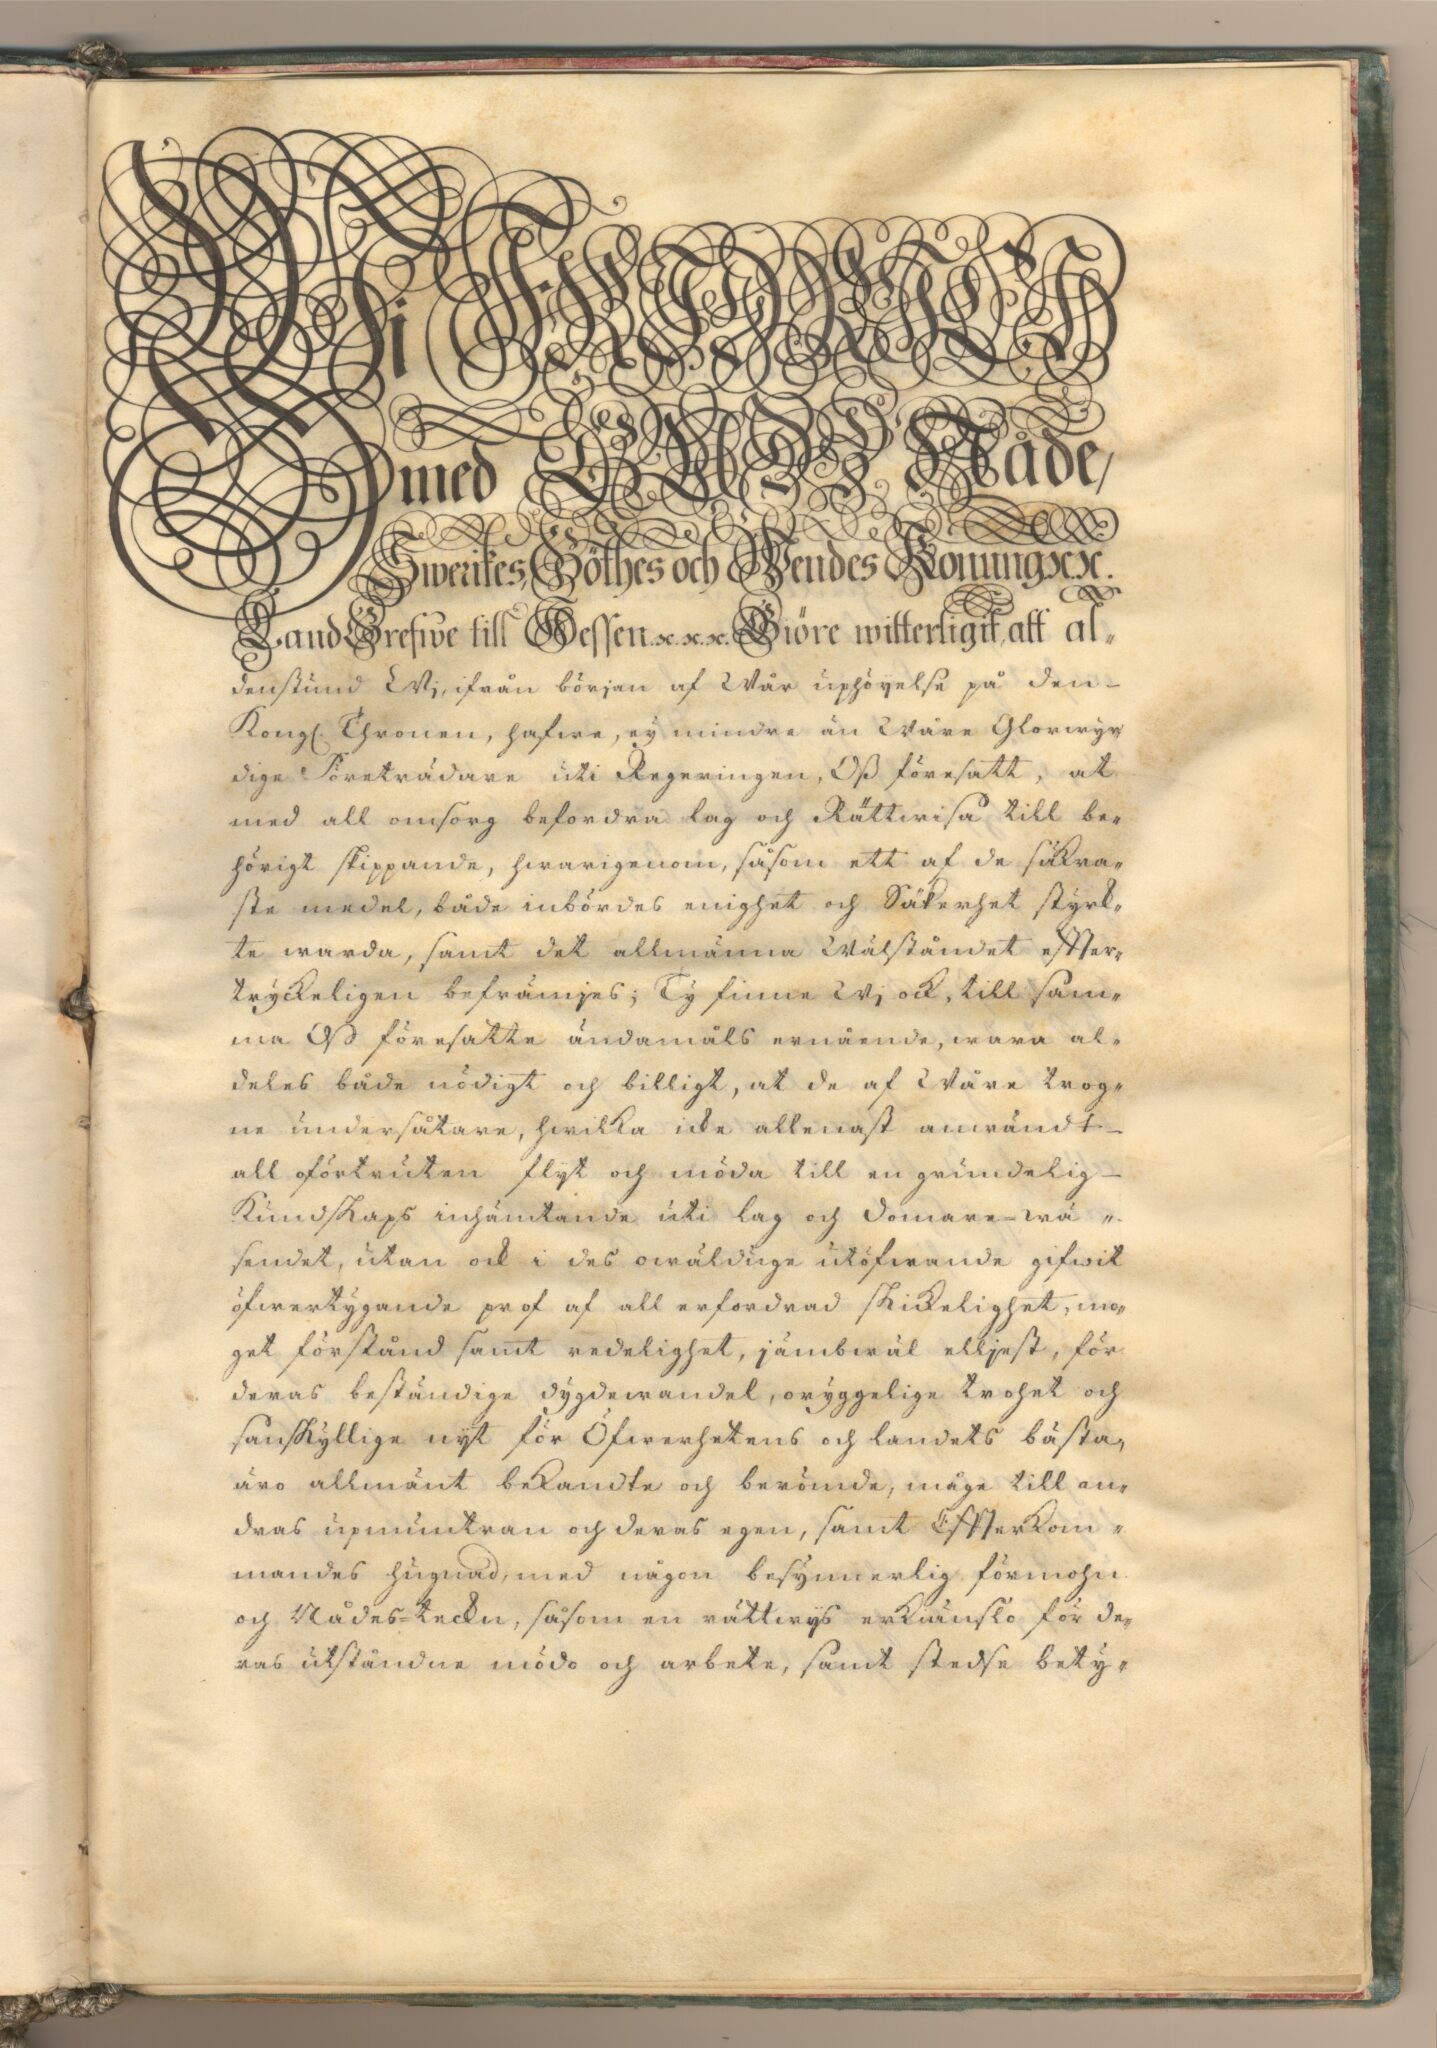 Wi FRIEDRICH
med GUDZ Nåde,
Swerikes, Göthes och Wendes Konung x.x.
Land Grefwe till Hessen x. x. x. Giöre witterligit, att al„
denstund Wj, ifrån början af Wår uphöyelse på den–
Kongl. Thronen, hafwe, ey mindre än Wåre Glorwyr
dige Företrädare uti Regeringen, Oß föresatt, at
med all omsorg befordra lag och Rättwisa till be„
hörigt skippande, hwarigenom, såsom ett af de säkra„
ste medel, både inbördes enighet och Säkerhet styrk„
te warda, samt det allmänna Wälståndet effter„
tryckeligen befrämjes; Ty finne Wj ock, till sam„
ma Oß föresatte ändamåls ernående, wara al„
deles både nödigt och billigt, at de af Wåre trog„
ne undersåtare, hwilka icke allenast anwändt–
all oförtruten flyt och möda till en grundelig–
Kundskaps inhämtande uti lag och Domare=wä„
sendet, utan ock i des owälduge utöfwande gifwit
öfwertygande prof af all erfordrad skickelighet, mo„
get förstånd samt redelighet, jämbwäl elljest, för
deras beständige dygdewandel, oryggelige trohet och
sanskyllige nyt för Öfwerhetens och landets bästa,
äro allmänt bekandte och berömde, måge till an„
dras upmuntran och deras egen, samt Effterkom„
mandes hugnad, med någon besynnerlig förmohn
och Nådes=teckn, såsom en rättwys erkiänslo för de„
ras utståndne mödo och arbete, samt stedse bety„